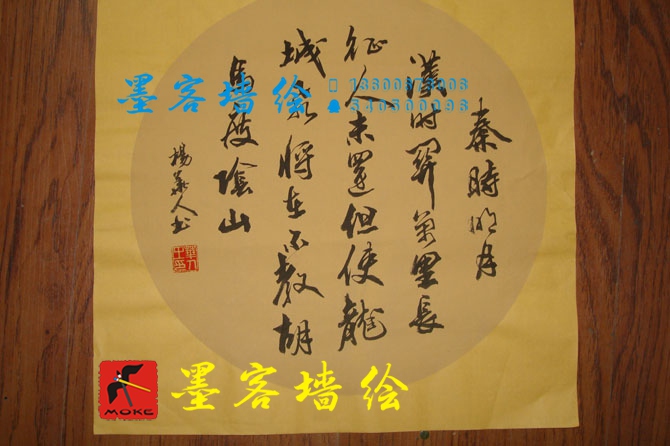 秦時明月
漢时關萬里長
征人未還但使龍
城飛將在不教胡
馬度陰山
楊人书
墨客墙绘
墨客墙绘
MOKE